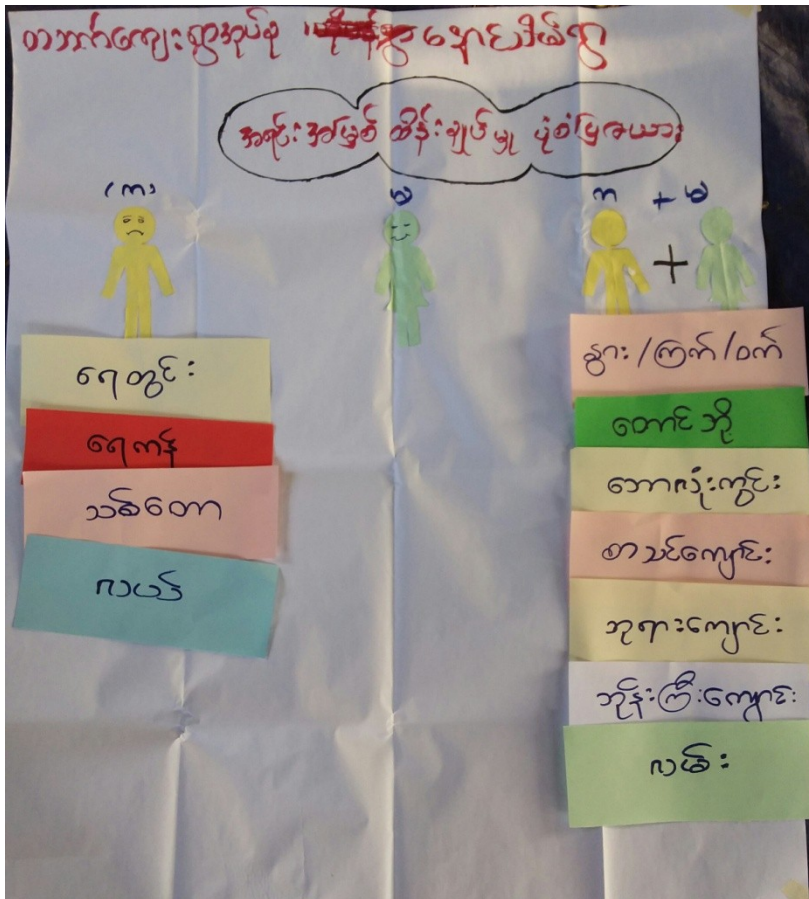 တဘက်ကျေးရွာအုပ်စု ရွာ နောင်ဒိမ်ရွာ
အရင်းအမြစ် ထိန်းချုပ်မှု ပုံစံပြဇယား
(ကာ) မ ကာ + မ
+
ရေတွင်း
ရေကန်
သစ်တော
လယ်
နွား/ကြက်/ဝက်
တောင်ဘို
ဘောလုံးကွင်း
စာသင်ကျောင်း
ဘုရားကျောင်း
ဘုန်းကြီးကျောင်း
လမ်း